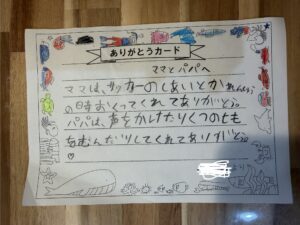 ありがとうカード
ママとパパへ
ママは、サッカーのしあいとかれんしゅう
の時おくってくれてありがとう。
パパは、声をかけたりくつひもを
むすんだりしてくれてありがとう。
♡
より